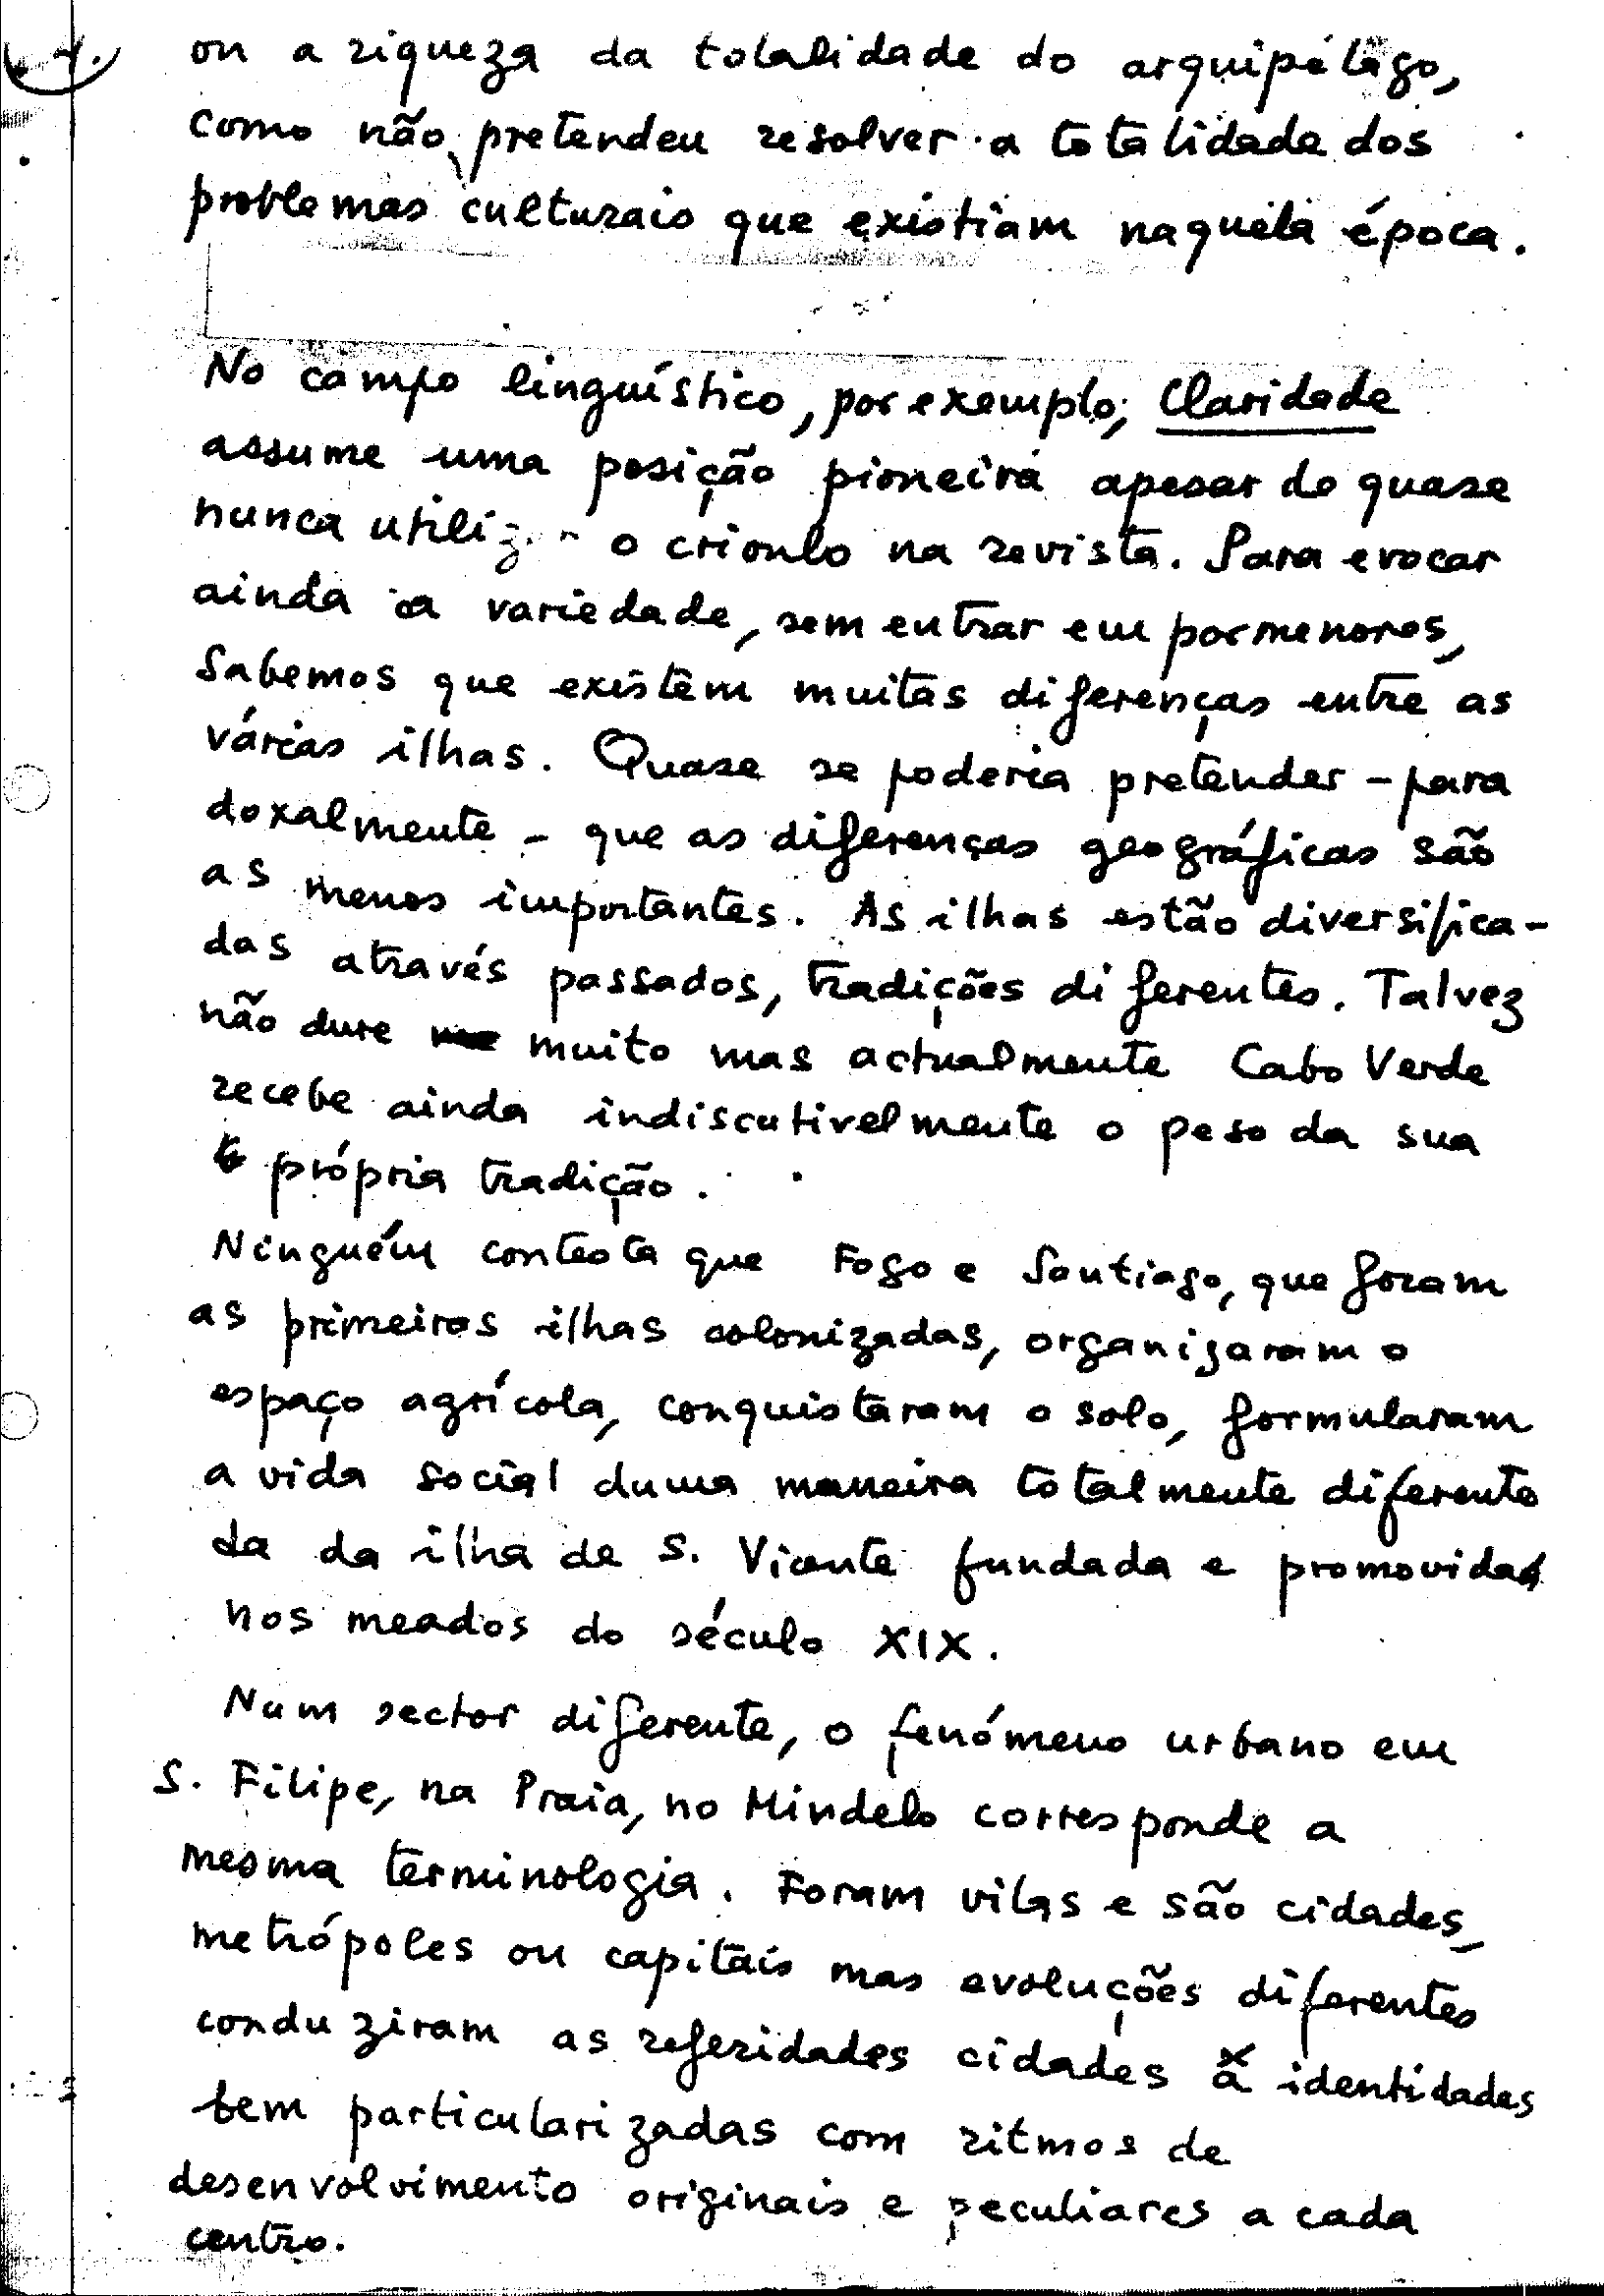 ou a riqueza da totalidade do arquipélago,
como não pretendeu resolver a totalidade dos
problemas culturais que existiam naquela época.
No campo linguístico, por exemplo, Claridade
assume uma posição pioneira apesar de quase
nunca utilizar o crioulo na revista. Para evocar
ainda a variedade, sem entrar em pormenores,
Sabemos que existem muitas diferenças entre as
várias ilhas. Quase se poderia pretender - para
doxalmente - que as diferenças geográficas são
as menos importantes. As ilhas estão diversifica-
das através passados, tradições diferentes. Talvez
não dure muito mas actualmente Cabo Verde
recebe ainda indiscutivelmente o peso da sua
própria tradição.
Ninguém contesta que Fogo e Santiago, que foram
as primeiras ilhas colonizadas, organizaram o
espaço agrícola, conquistaram o solo, formularam
a vida social duma maneira totalmente diferente
da da ilha de S. Vicente fundada e promovida
nos meados do século XIX.
Num sector diferente, o fenómeno urbano em
S. Filipe, na Praia, no Mindelo corresponde a
mesma terminologia. Foram vilas e são cidades,
metrópoles ou capitais mas evoluções diferentes
conduziram as referidades cidades a identidades
bem particularizadas com ritmos de
desenvolvimento originais e peculiares a cada
centro.